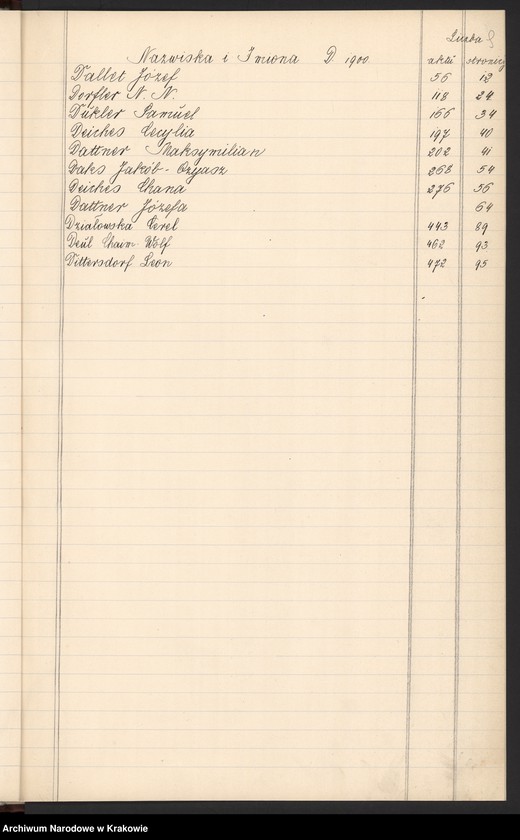 Liczba
Nazwiska i Imiona D 1900 aktu stronicy
Dallet Józef 56 12
Dorfler N. N. 118 24
Dükler Samuel 166 34
Deiches Cecylia 197 40
Dattner Maksymilian 202 41
Daks Jakób-Ozyasz 268 54
Deiches Chana 276 56
Dattner Józefa 64
Działowska Cerel 443 89
Deul Chaim Wolf 462 93
Dittersdorf Leon 472 95
Archiwum Narodowe w Krakowie